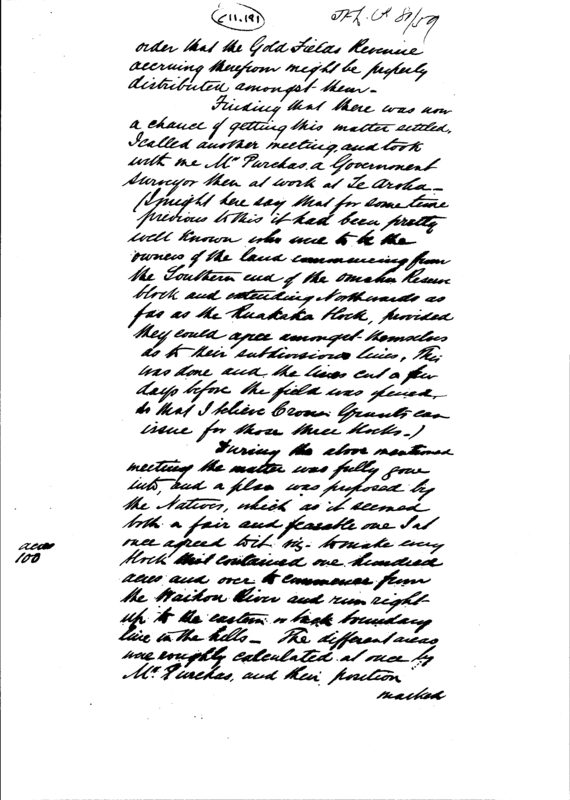 C11.191
order that the Gold Fields Revenue
accruing therefrom might be properly
distributed amongst them -
Finding that there was now
a chance of getting this matter settled,
I called another meeting, and took
with me Mr Purchas, a Government
Surveyor then at work at Te Aroha -
(I might here say that for some time
previous to this it had been pretty
well known who were to be the
owners of the land commencing from
the Southern end of the Omahu Reserve
block and extending Northwards as
far as the Ruakaka block, provided
they could agree amongst themselves
as to their subdivision lines, This
was done and the lines cut a few
days before the field was opened,
so that I believe Crown Grants can
issue for those three blocks -)
During the above mentioned
meeting the matter was fully gone
into, and a plan was proposed by
the Natives, which as it seemed
both a fair and feasable one I at
once agreed to it viz - to make every
acres
100
block that contained one hundred
acres and over to commence from
the Waihou River and run right
up to the eastern or back boundary
line in the hills - The different areas
were roughly calculated at once by
Mr Purchas, and their position
marked